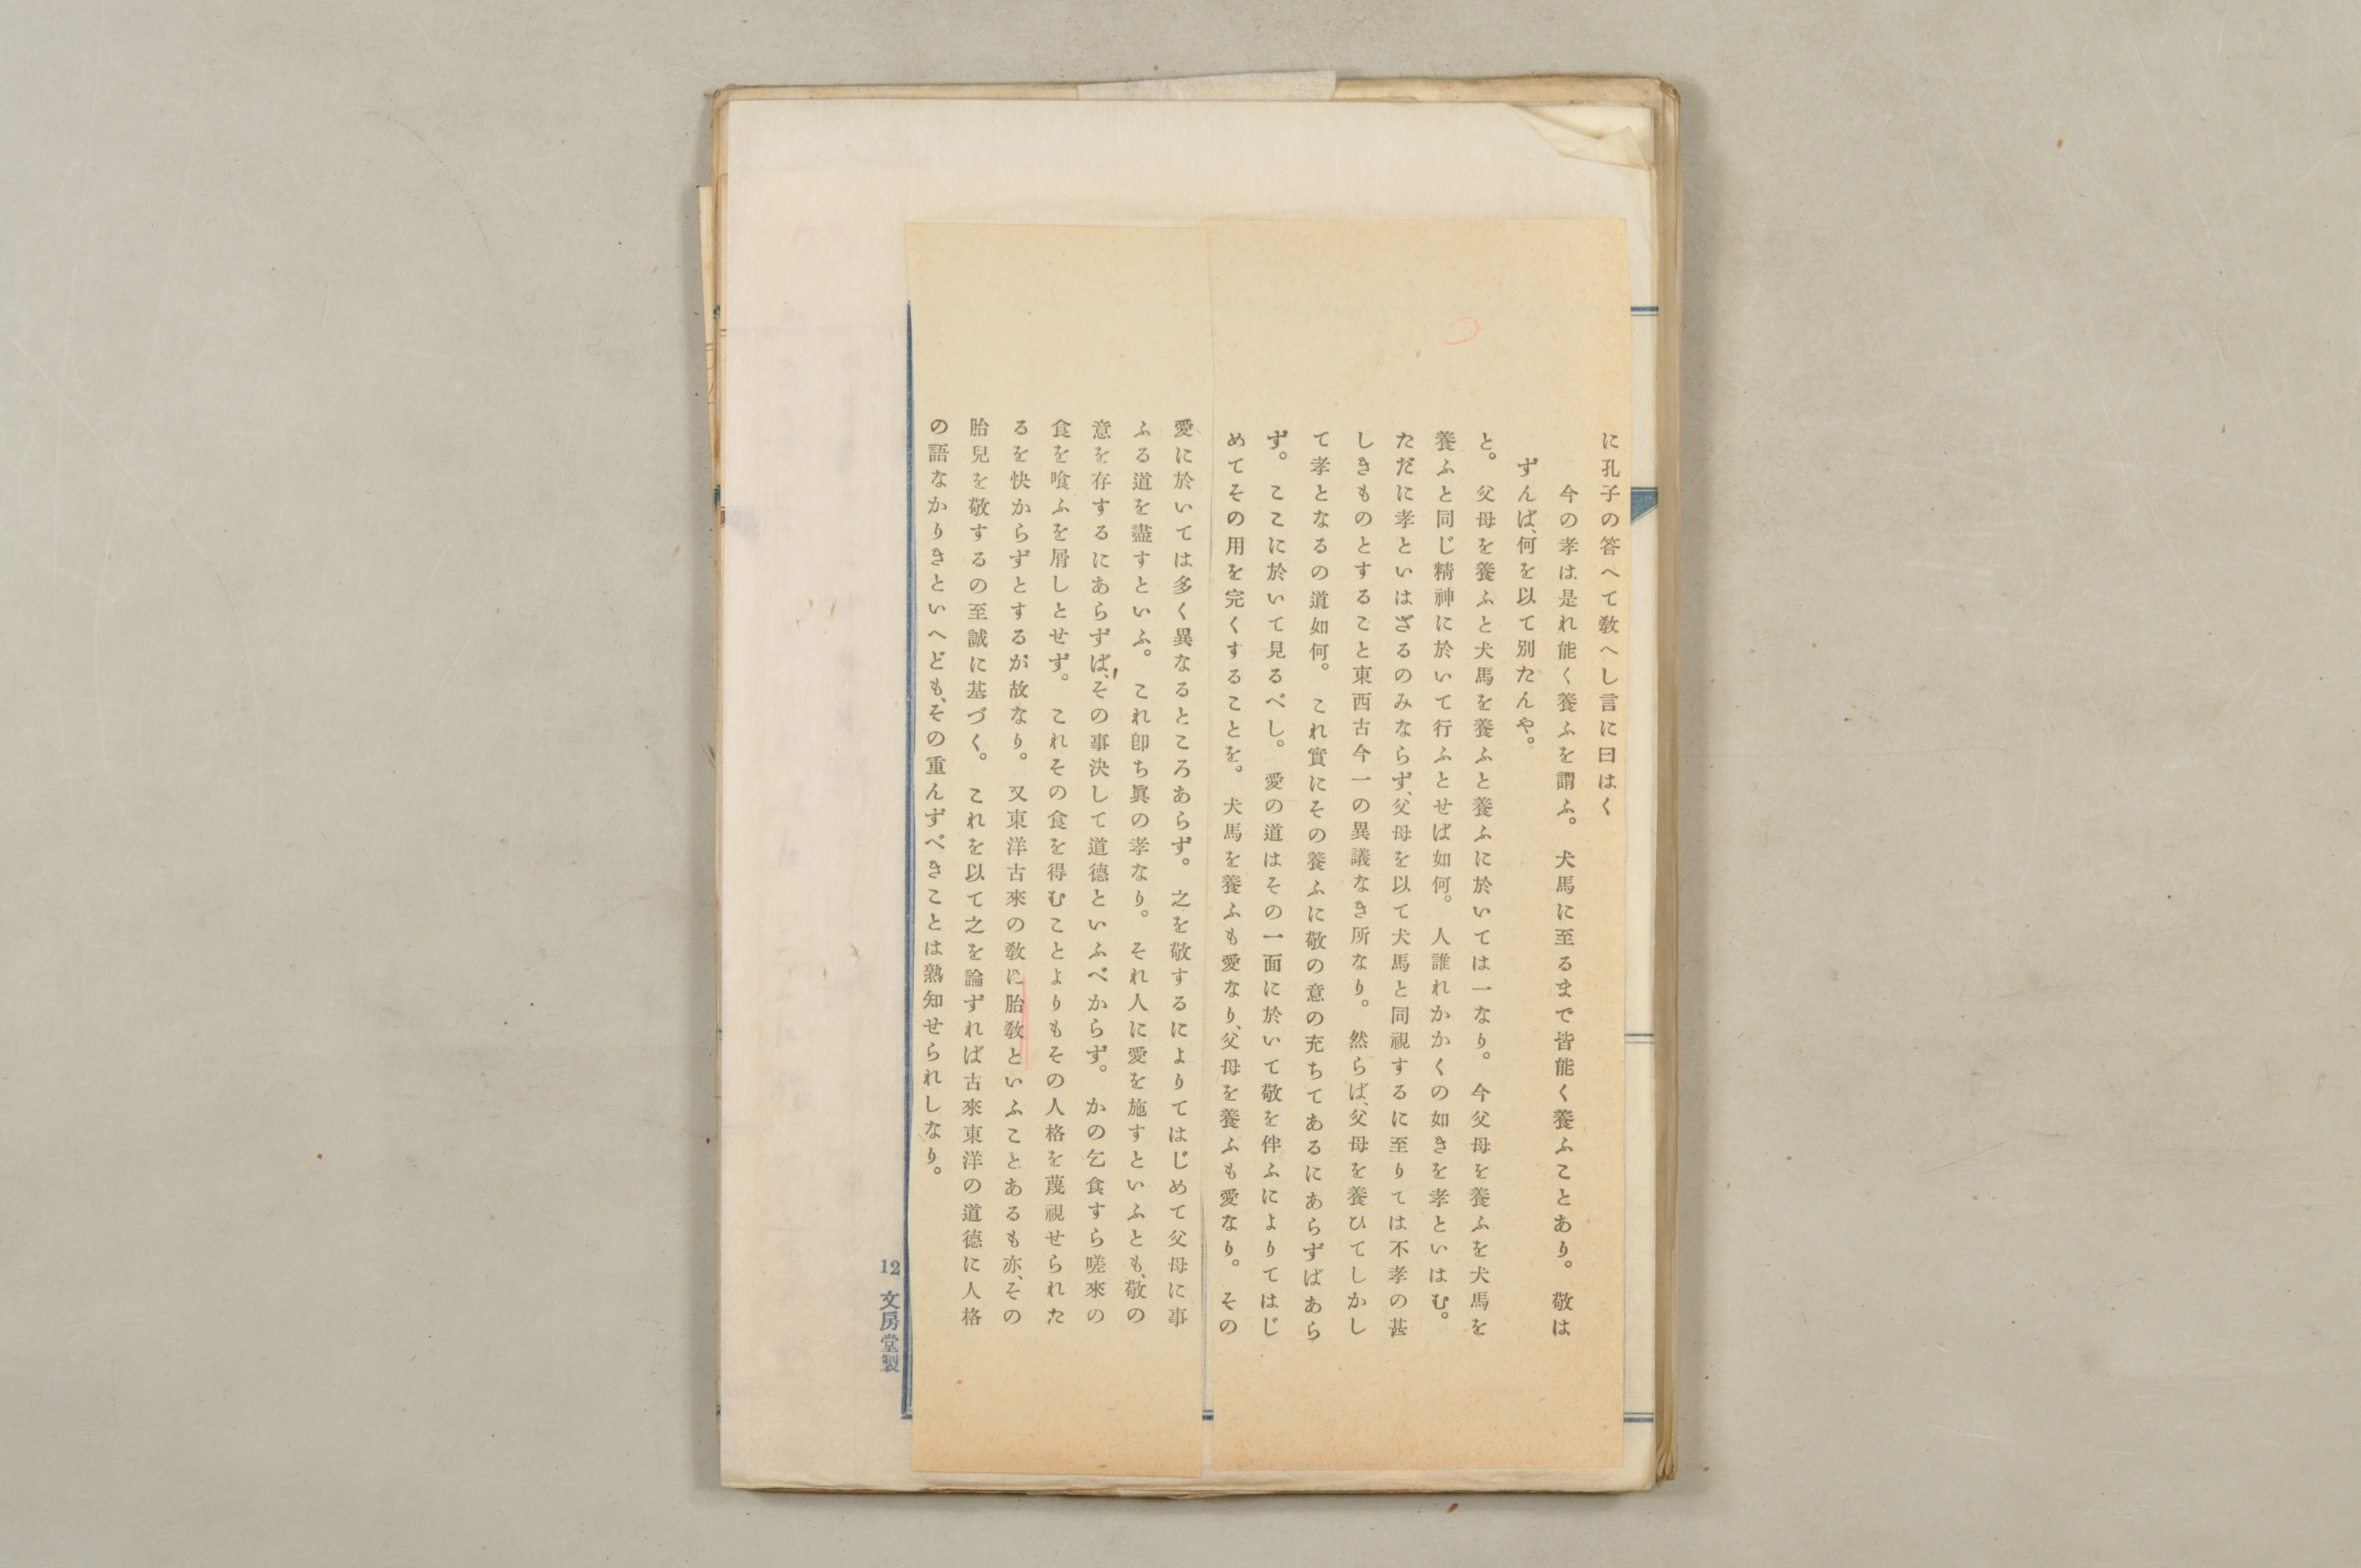 に孔子の答へて敎へし言に曰はく
今の孝は是れ能く養ふを謂ふ。犬馬に至るまで皆能く養ふことあり。敬は
ずんば、何を以て別たんや。
と。父母を養ふと犬馬を養ふと養ふに於いては一なり。今父母を養ふを犬馬を
養ふと同じ精神に於いて行ふとせば如何。人誰れかかくの如きを孝といはむ。
ただに孝といはざるのみならず、父母を以て犬馬と同視するに至りては不孝の甚
しきものとすること東西古今一の異議なき所なり。然らば、父母を養ひてしかし
て孝となるの道如何。これ實にその養ふに敬の意の充ちてあるにあらずばあら
ず。ここに於いて見るべし。愛の道はその一面に於いて敬を伴ふによりてはじ
めてその用を完くすることを。犬馬を養ふも愛なり、父母を養ふも愛なり。その
愛に於いては多く異なるところあらず。之を敬するによりてはじめて父母に事
ふる道を盡すといふ。これ卽ち眞の孝なり。それ人に愛を施すといふとも、敬の
意を存するにあらずば、その事決して道德といふべからず。かの乞食すら嗟來の
食を喰ふを屑しとせず。これその食を得むことよりもその人格を蔑視せられた
るを快からずとするが故なり。又東洋古來の敎に胎敎といふことあるも亦、その
胎兒を敬するの至誠に基づく。これを以て之を論ずれば古來東洋の道德に人格
の語なかりきといへども、その重んずべきことは熟知せられしなり。
12 文房堂製